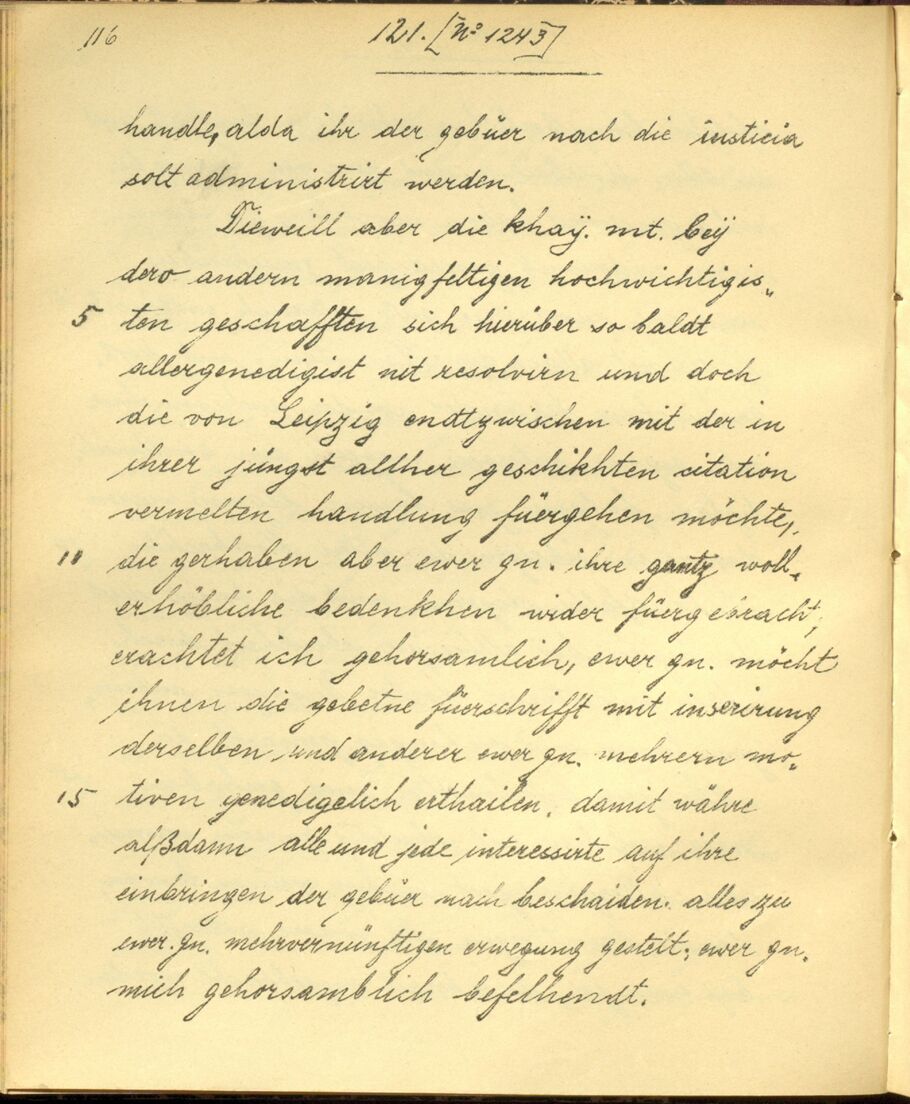 116
121. [No 1243]
handle, alda ihr der gebüer nach die iusticia
solt administrirt werden.
Dieweill aber die khaÿ. mt. beÿ
dero andern manigfeltigen hochwichtigis„
5 ten geschafften sich hierüber so baldt
allergenedigist nit resolvirn und doch
die von Leipzig endtzwischen mit der in
ihrer jüngst alther geschikhten citation
vermelten handlung füergehen möchte,
10 die gerhaben aber ewer gn. ihre gantz woll„
erhöbliche bedenkhen wider füergebracht,
erachtet ich gehorsamlich, ewer gn. möcht
ihnen die gebetne füerschrifft mit inserirung
derselben und anderer ewer gn. mehrern mo„
15 tiven genedigelich erthailen, damit währe
alßdann alle und jede interessirte auf ihre
einbringen der gebüer nach beschaiden. alles zu
ewer. gn. mehrvernünftigen erwegung gestelt, ewer gn.
mich gehorsamblich befelhendt.